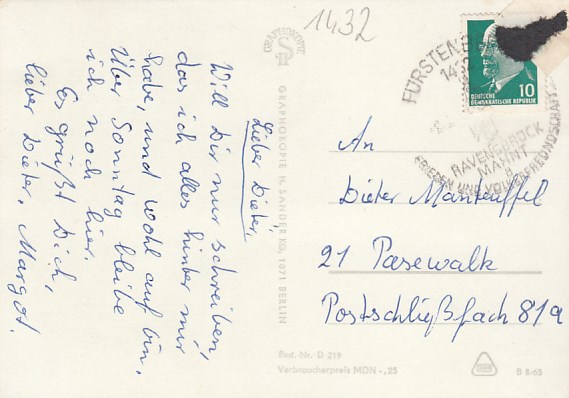 1432
GRAPHOKOPIE
Lieber Dieter,
Will Dir nur schreiben,
das ich alles hinter mir
habe, und wohl auf bin,
Über Sonntag bleibe
ich noch hier.
Es grüßt Dich,
lieber Dieter, Margot.
GRAPHOKOPIE H. SANDER KG, 1071 BERLIN
FÜRSTENB
1432
DEUTSCHE
DEMOKRATISCHE REPUBLIK
10
RAVENSBRÜCK
MAHNT
FRIEDEN UND VÖLKERFREUNDSCHAFT
An
Dieter Manteuffel
21 Pasewalk
Postschließfach 819a
Best.-Nr. D 219
Verbraucherpreis MDN -,25
B 8/65